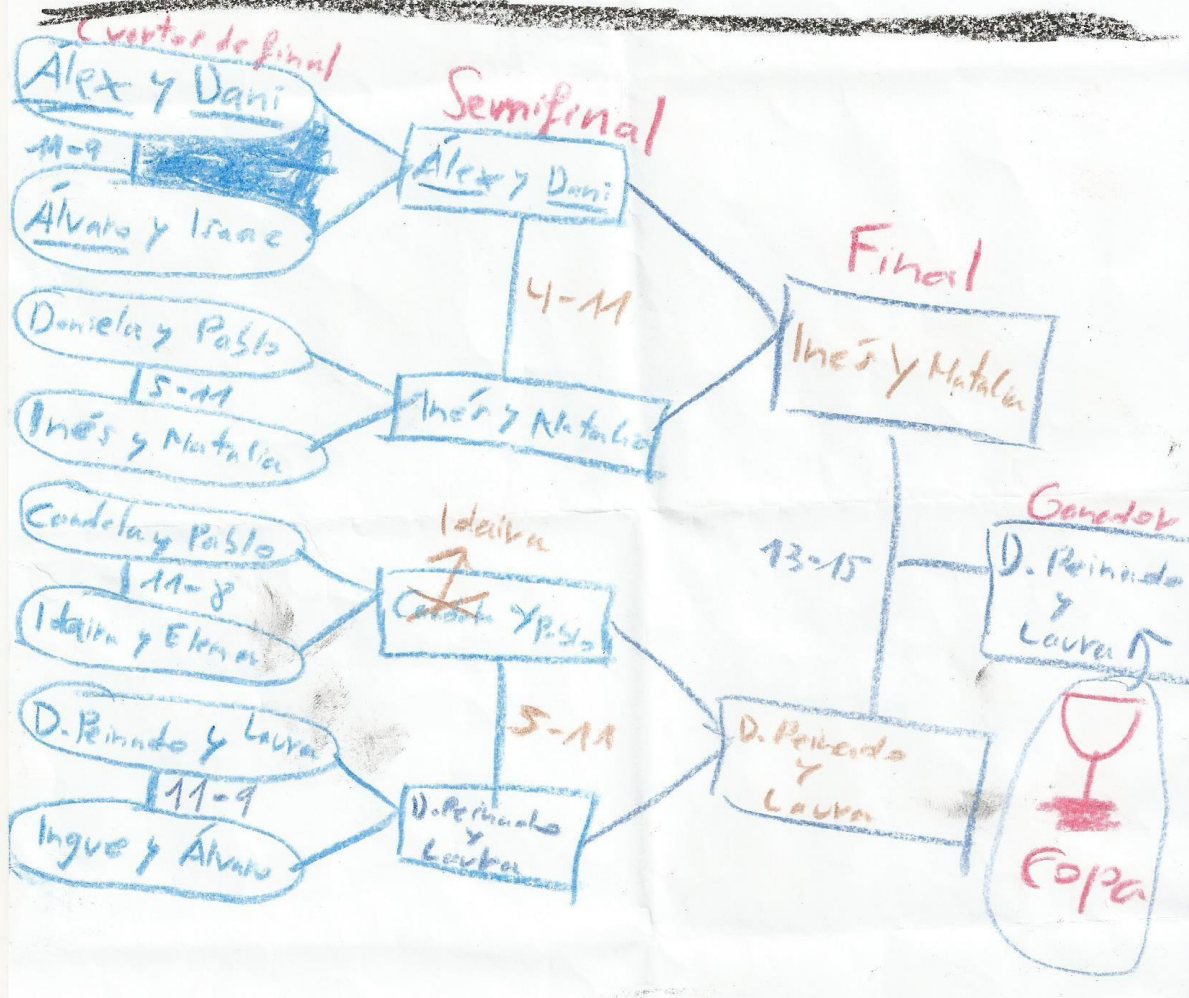 Cuartos de final
Álex y Dani
11-9
Álvaro y Isaac
Daniela y Pablo
5-11
Inés y Natalia
Candela y Pablo
11-8
Idaira y Elena
D. Peinado y Laura
11-9
Ingue y Álvaro
Semifinal
Álex y Dani
4-11
Inés y Natalia
Idaira
Candela y Pablo
5-11
D. Peinado
y
Laura
Final
Inés y Natalia
13-15
D. Peinado
y
Laura
Ganador
D. Peinado
y
Laura
Copa